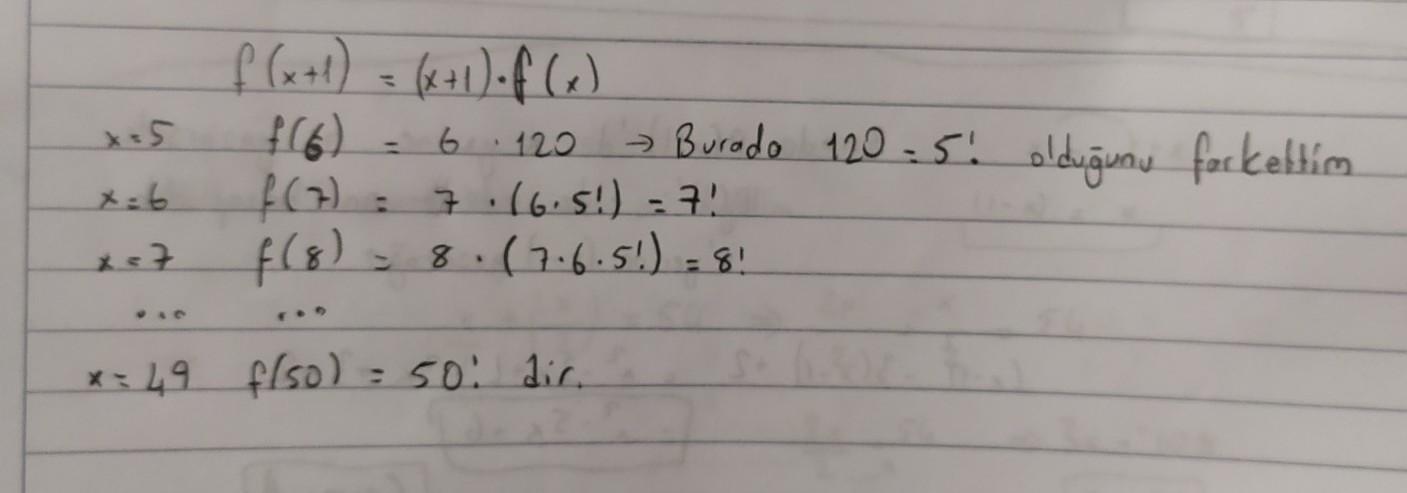 f(x+1) = (x+1)·f(x)
x=5 f(6) = 6 · 120 → Burada 120 = 5! olduğunu farkettim
x=6 f(7) = 7 · (6·5!) = 7!
x=7 f(8) = 8 · (7·6·5!) = 8!
... ...
x=49 f(50) = 50! dir.